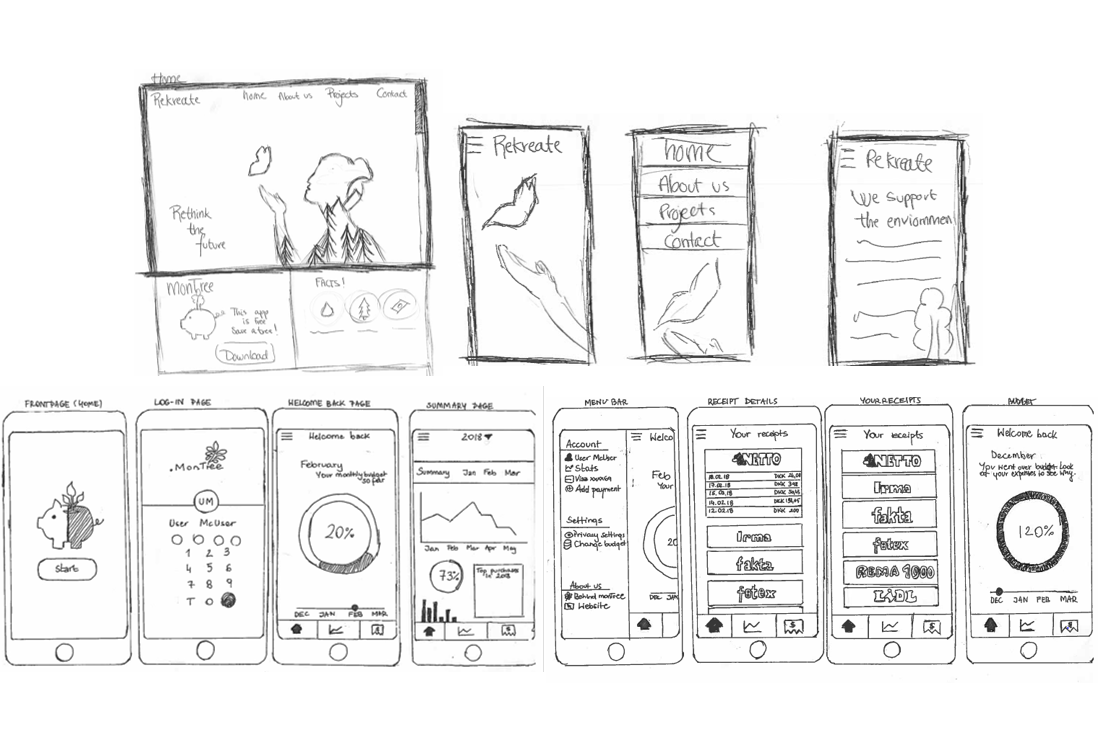 Home
Rekreate
home About us Projects Contact
Rethink
the
future
MonTree
This app
is free
Save a tree!
Download
FACTS!
Rekreate
home
About us
Projects
Contact
Rekreate
We support
the enviommen
FRONTPAGE (HOME)
Start
LOG-IN PAGE
MonTree
UM
User McUser
1 2 3
4 5 6
7 8 9
T 0
WELCOME BACK PAGE
Welcome back
February
Your monthly budget
so far
20%
DEC JAN FEB MAR
SUMMARY PAGE
2018
Summary Jan Feb Mar
Jan Feb Mar Apr May
73%
Top purchases
in 2018
MENU BAR
Account
User McUser
Stats
Visa
Add payment
Settings
Privacy settings
Change budget
About us
Behind monTree
Website
Welco
Feb
Your
20
DEC JAN
RECEIPT DETAILS
Your receipts
NETTO
DKK
DKK
DKK
DKK
12.02.18 DKK 200
Irma
fakta
føtex
YOUR RECEIPTS
Your receipts
NETTO
Irma
fakta
føtex
REMA 1000
LIDL
BUDGET
Welcome back
December
You went over budget. Look
at your expenses to see why.
120%
DEC JAN FEB MAR